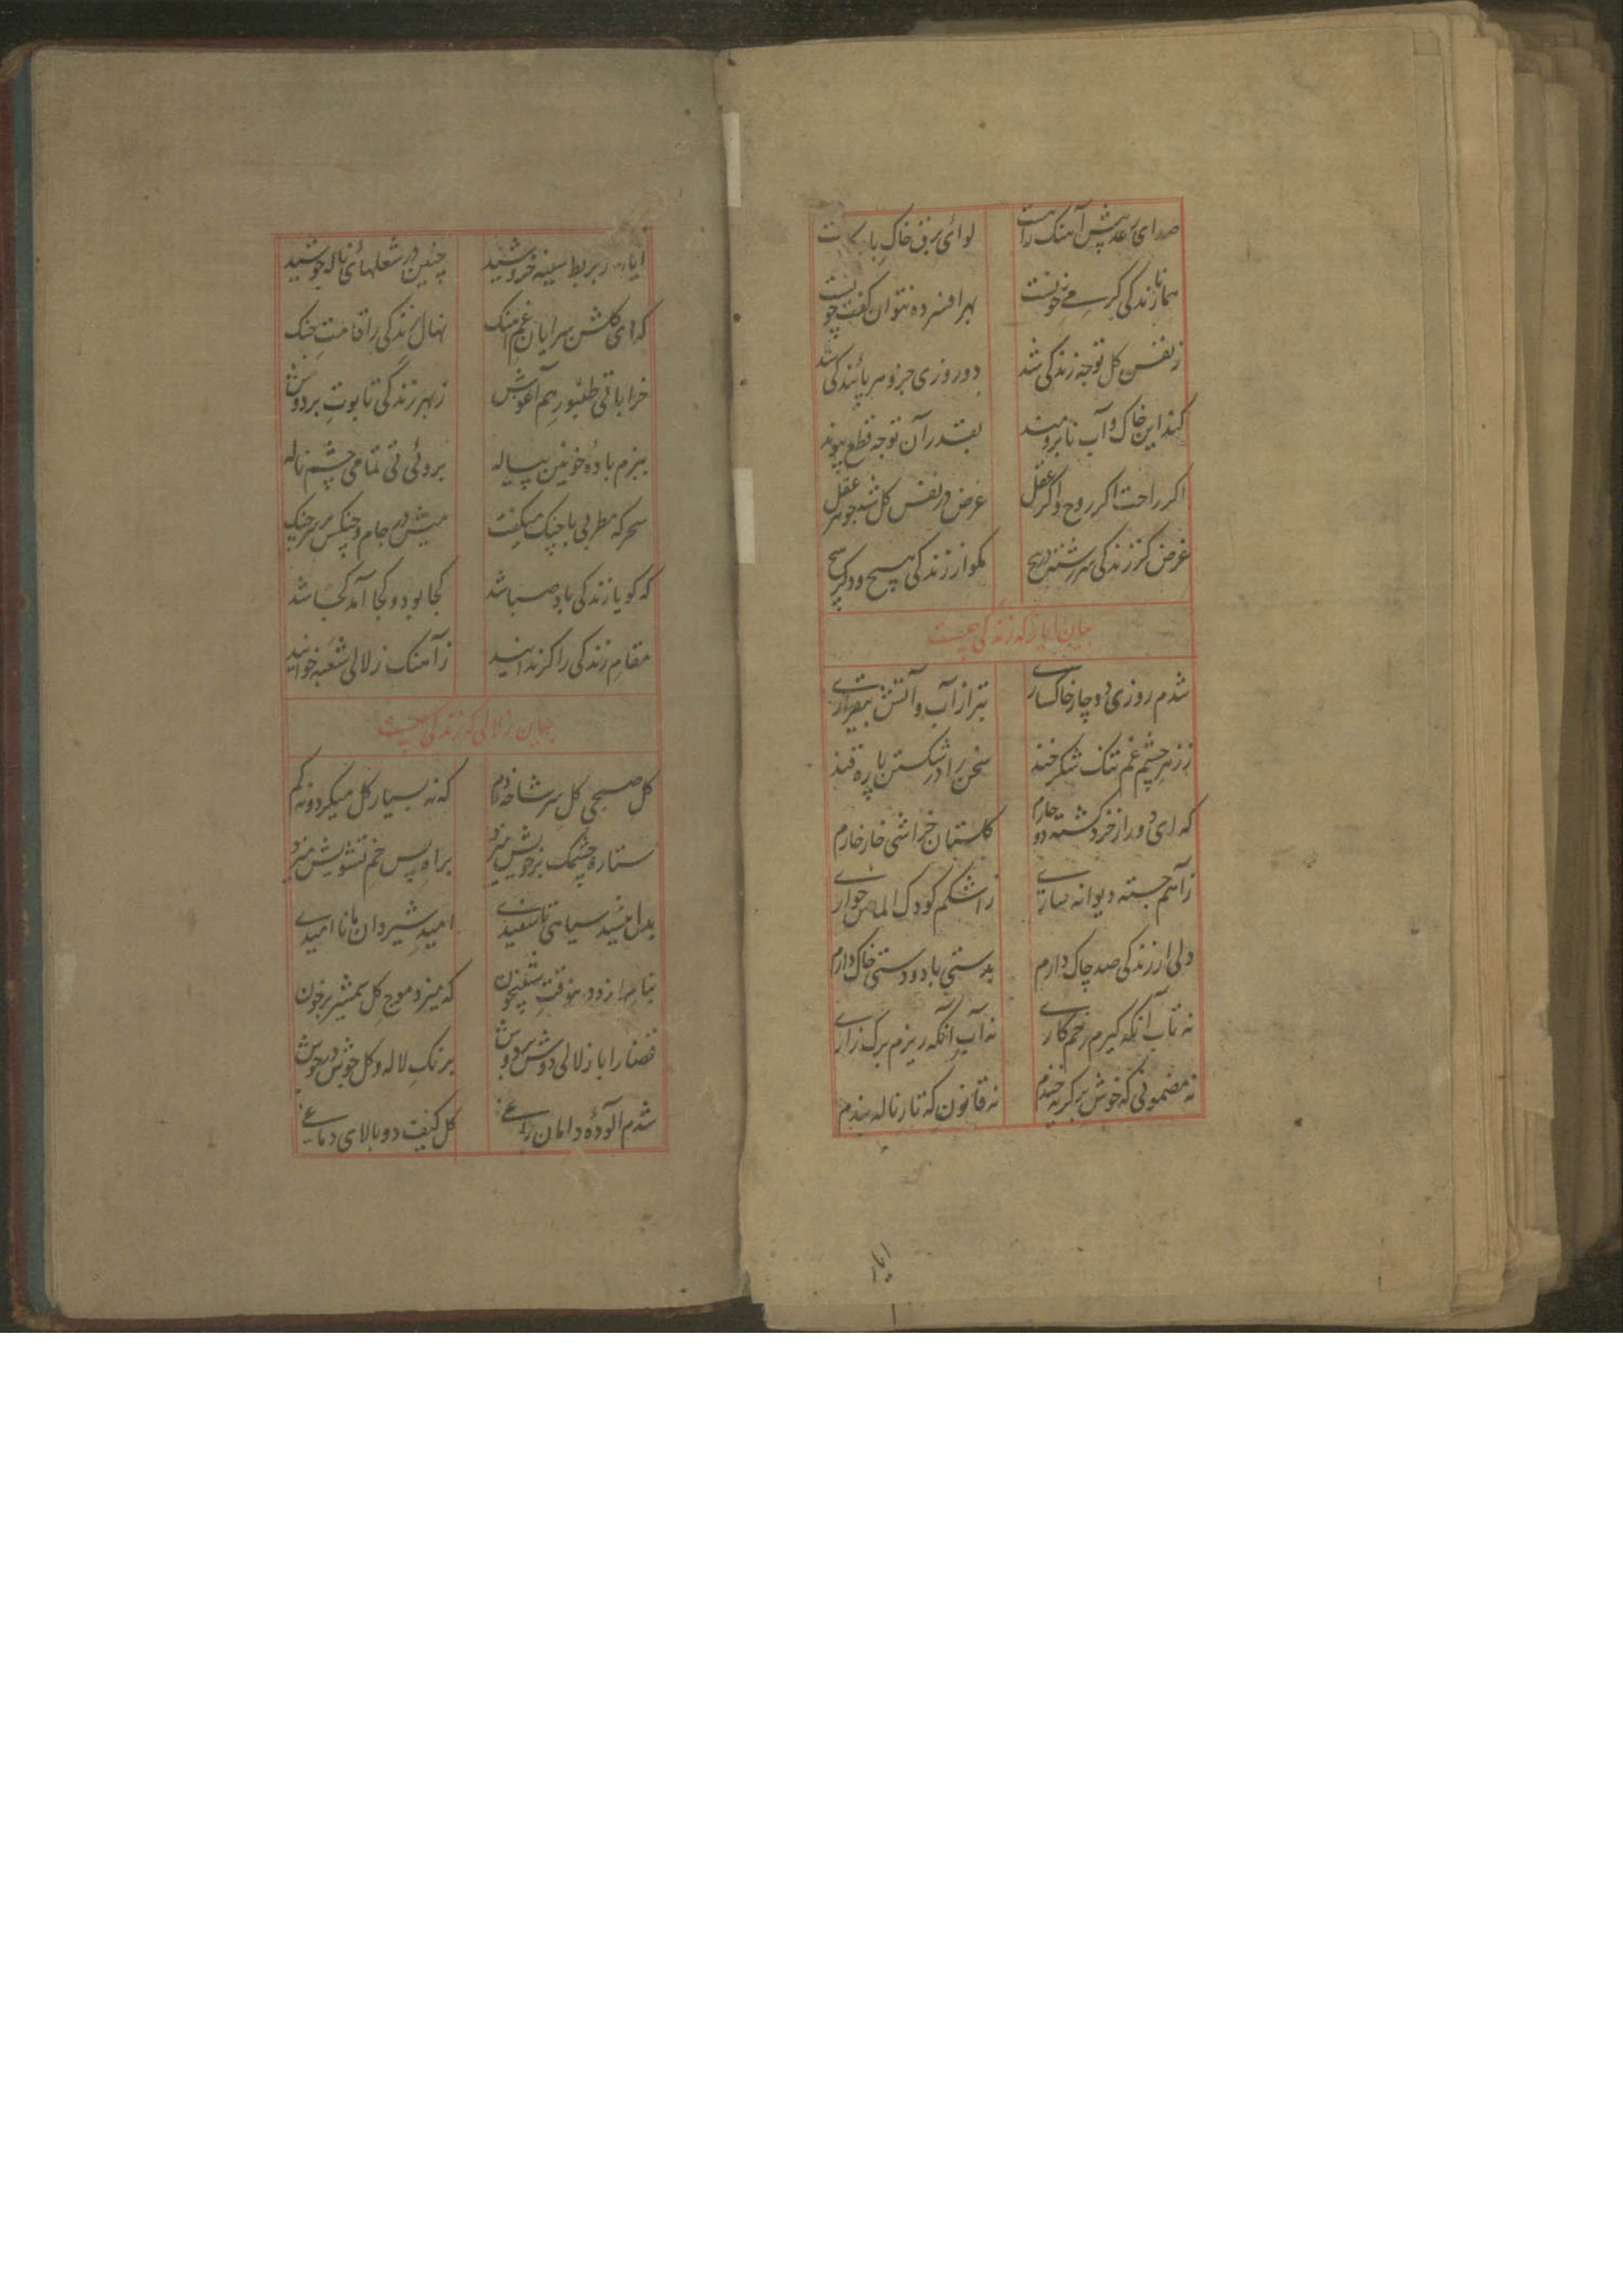 صدای رعد پیش آهنک راست لوای برق خاک با ت
همانا زندکی کرمی خونست بهر افسرده نتوان کفت چونست
ز نفس کل توجه زندکی شد دو روزی جزو مر پائندکی شد
کند این خاک و آب نابرومند بقدر آن توجه قطع پیوند
اکر راحت اکر روح و اکر عقل غرض در نفس کل شد جوهر عقل
غرض کز زندکی سررشته در هیچ مکو از زندکی هیچ و دکر هیچ
بیان ایاز که زندکی چیست
شدم روزی دوچار خاکساری تر از آب و آتش بیقراری
ز زهر چشم غم تنک شکر خند سخن را در شکستن پاره قند
که ای دور از خرد کشته دوچارم کلستان خراشی خار خارم
ز آهم جسته دیوانه ساری ز اشکم کودک الماس خواری
دلی از زندکی صد چاک دارم بدستی باد و دستی خاک دارم
نه تاب آنکه کیرم زخم کاری نه آب آنکه ریزم برک زاری
نه مضمونی که خوش بر کریه خندم نه قانون که تار ناله بندم
ایاز
ایاز بربط سینه خروشید چنین در شعلهائ ناله جوشید
که ای کلشن سرایان غم آهنک نهال زندکی را قامت چنک
خراباتی طنبور هم آغوش ز بهر زندکی تابوت بر دوش
ببزم بادۀ خونین پیاله بروئی نی تمامی چشم ناله
سحرکه مطربی با چنک میکفت میش در جام و چنکس بر سر چنک
که کویا زندکی باد صبا شد کجا بود و کجا آمد کجا شد
مقام زندکی را کر ندانید ز آهنک زلالی شعبه خوانید
بیان زلالی که زندکی چیست
کل صبحی کل سر شاخه دم که نه بسیار کل میکرد و نه کم
ستاره چشمک بر خویش میزد براه پس خم تشویش میزد
بدل میشد سیاهی تا سفیدی امید شیردان با ناامیدی
که میزد موج کل شمشیر بر خون
قضا را با زلالی دوش بر دوش برنک لاله و کل خوش در جوش
شدم آلودۀ دامان راغی کل کیفت دو بالای دماغی